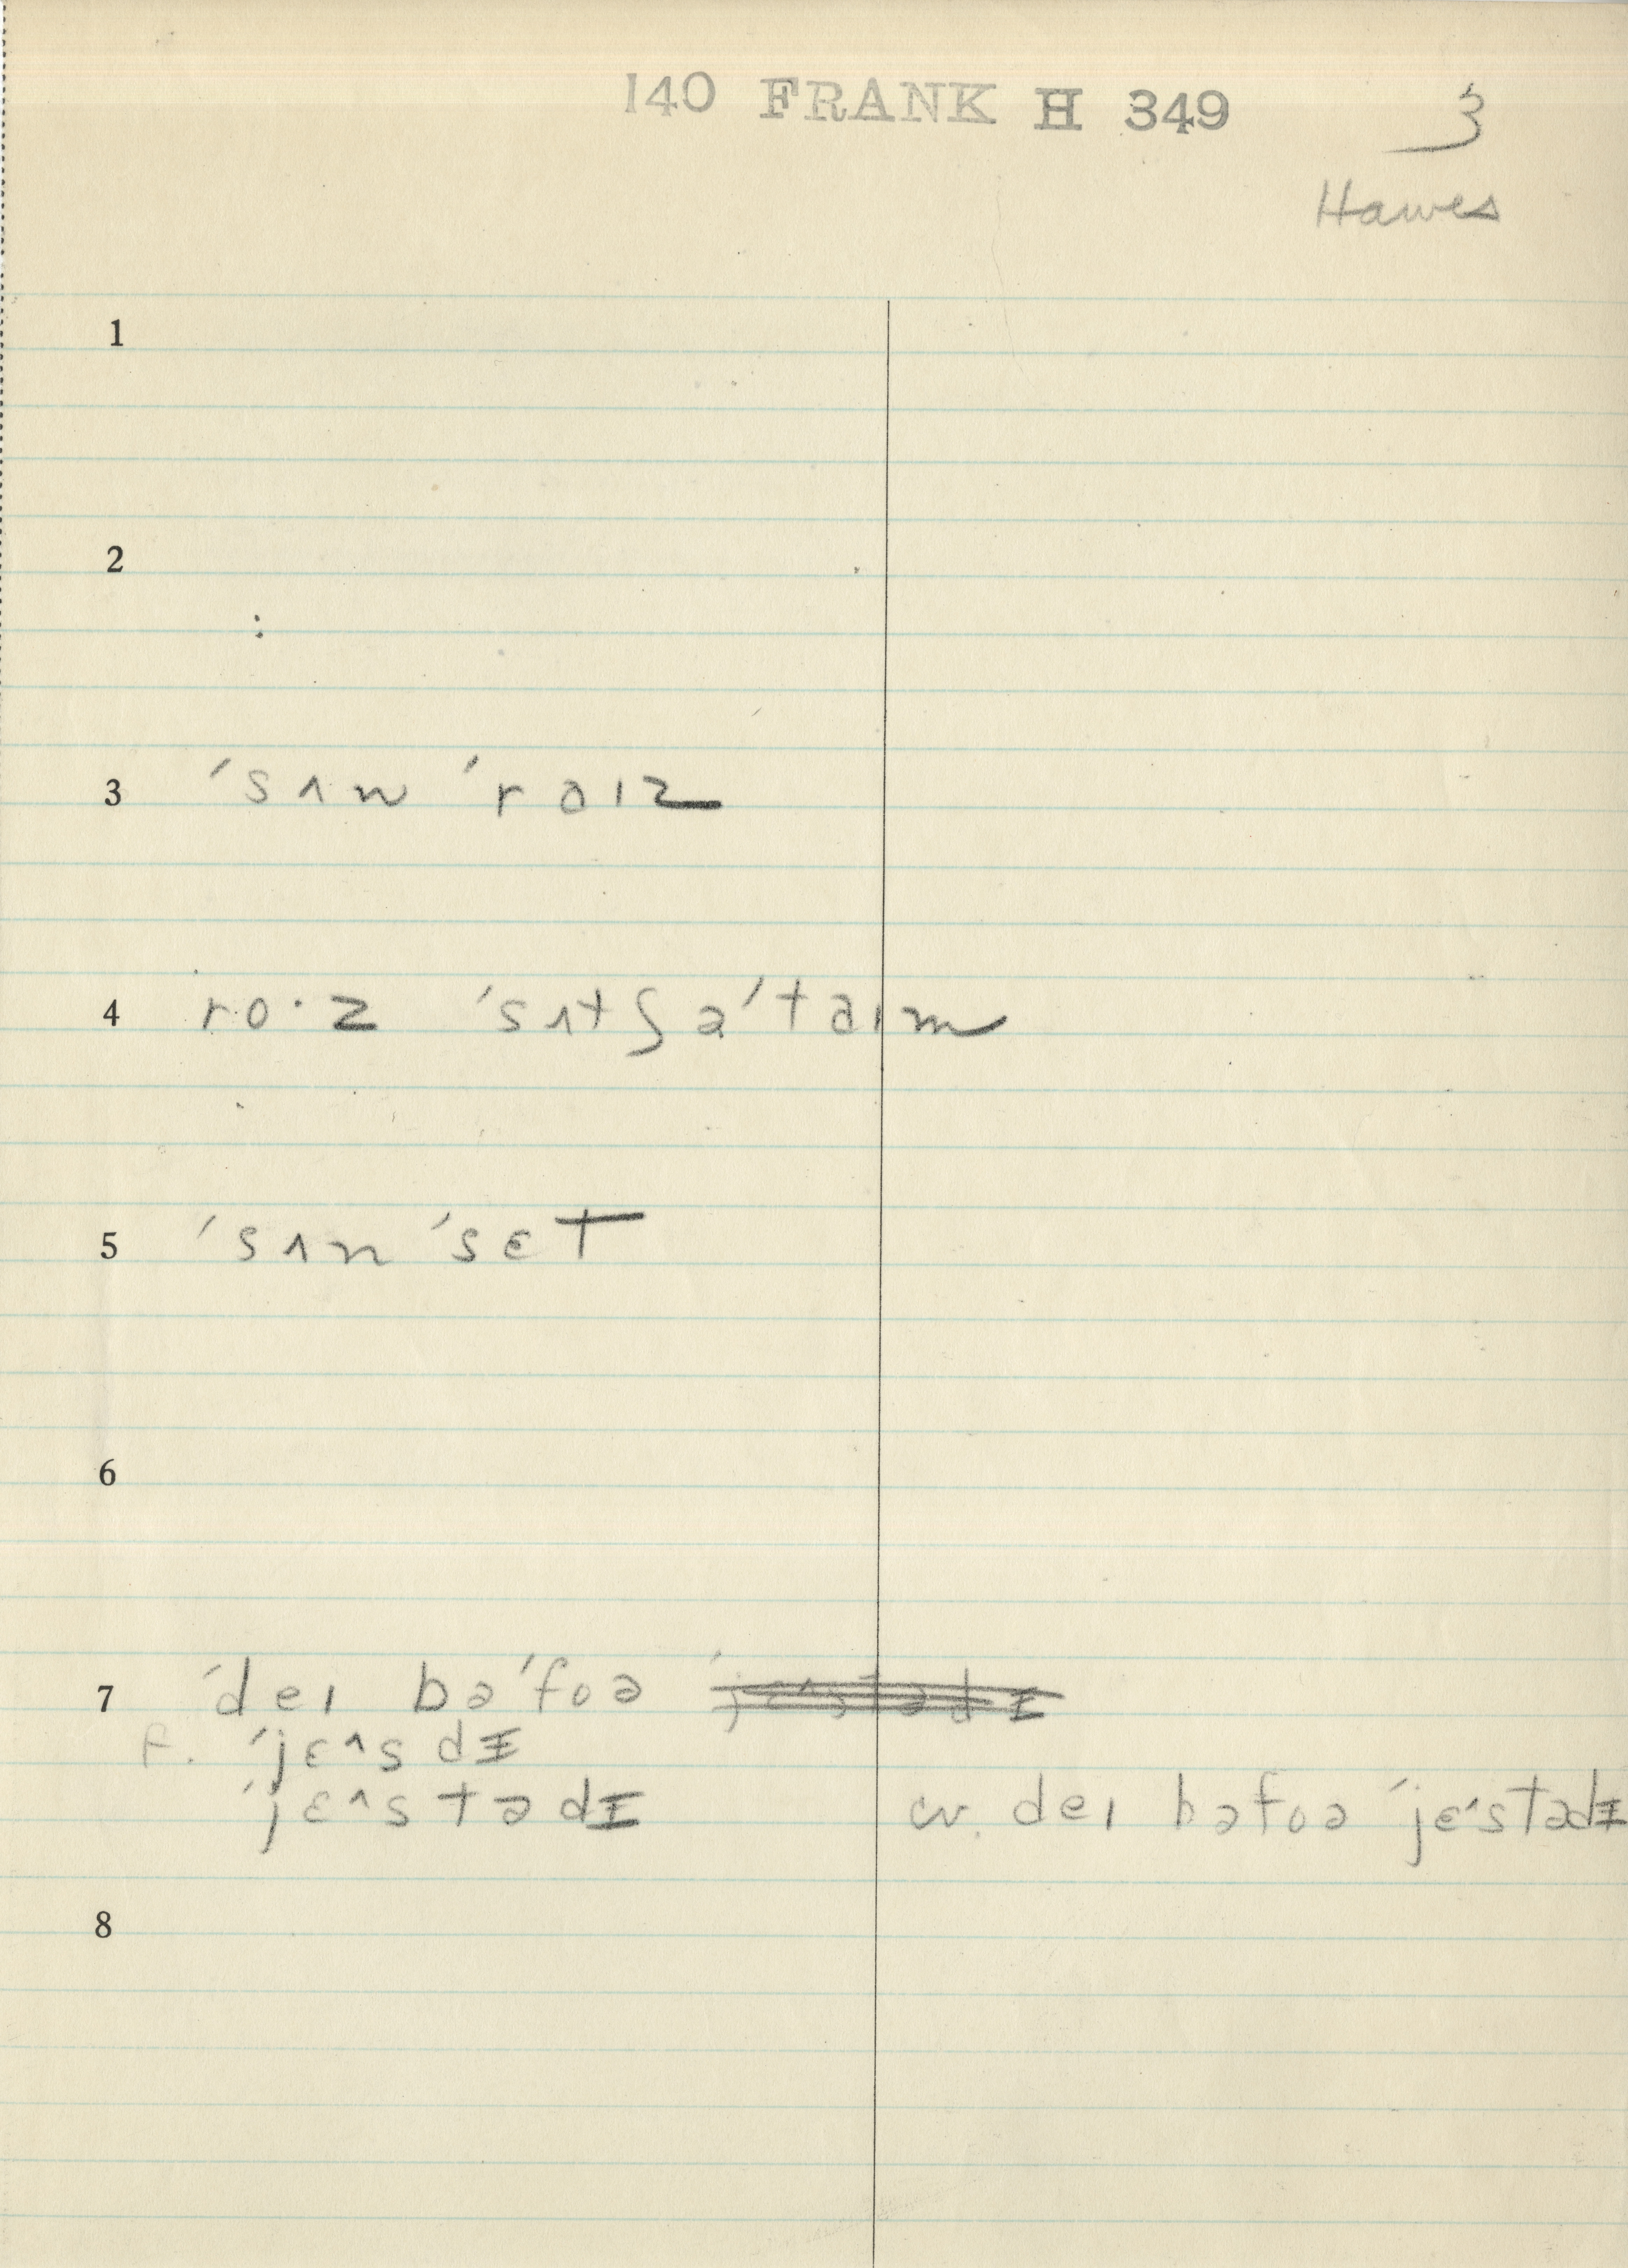 140 FRANK H 349
3
Hawes
1
2
:
3 ˈsʌn ˈraɪz
4 ro·z ˈsʌtʃ ə ˈtaɪm
5 ˈsʌn ˈsɛt
6
7 ˈdeɪ bəˈfoə ˈjɛ^stədɪ
F. ˈjɛ^sdɪ
ˈjɛ^stədɪ w. deɪ bəfoə ˈjɛ^stədɪ
8